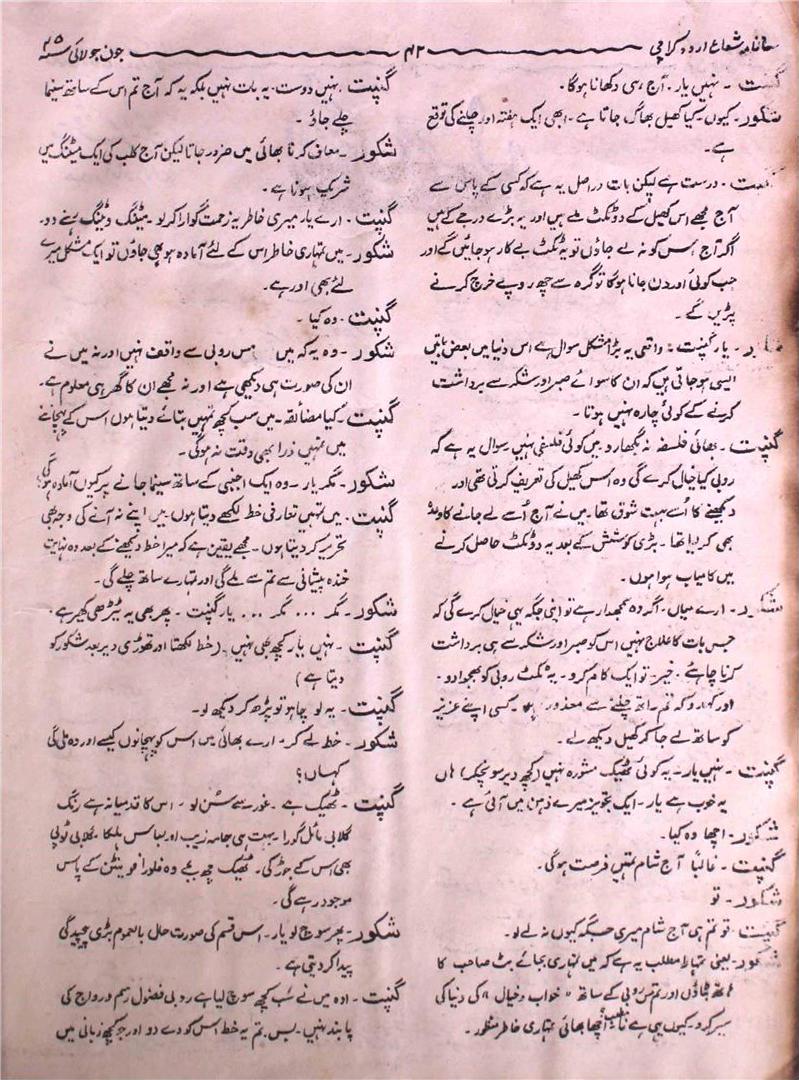 ماہنامہ شعاع اردو کراچی ۴۲ جون جولائی ۲۵ء
گنپت ۔ نہیں یار ۔ آج ہی دکھانا ہوگا۔
شکور ۔ کیوں کیا کھیل بھاگ جاتا ہے ۔ ابھی ایک ہفتہ اور چلنے کی توقع
ہے ۔
گنپت ۔ درست ہے لیکن بات دراصل یہ ہے کہ کسی کے پاس سے
آج مجھے اس کھیل کے دو ٹکٹ ملے ہیں اور یہ بڑے درجے کے ہیں
اگر آج اس کو نہ لے جاؤں تو یہ ٹکٹ بے کار ہو جائیں گے اور
جب کوئی اور دن جانا ہوگا تو گرہ سے چھ روپے خرچ کرنے
پڑیں گے ۔
شکور ۔ یار گنپت ۔ واقعی یہ بڑا مشکل سوال ہے اس دنیا میں بعض باتیں
ایسی ہو جاتی ہیں کہ ان کا سوائے صبر اور شکر سے برداشت
کرنے کے کوئی چارہ نہیں ہوتا ۔
گنپت ۔ بھائی فلسفہ نہ بگھارو میں کوئی فلسفی نہیں سوال یہ ہے کہ
روبی کیا خیال کرے گی وہ اس کھیل کی تعریف کرتی تھی اور
دیکھنے کا اُسے بہت شوق تھا ۔ میں نے آج اُسے لے جانے کا وعدہ
بھی کر لیا تھا ۔ بڑی کوشش کے بعد یہ دو ٹکٹ حاصل کرنے
میں کامیاب ہوا ہوں ۔
شکور ۔ ارے میاں ۔ اگر وہ سمجھدار ہے تو اپنی جگہ یہی خیال کرے گی کہ
جس بات کا علاج نہیں اس کو صبر اور شکر سے ہی برداشت
کرنا چاہئے ۔ خیر ۔ تو ایک کام کرو ۔ یہ ٹکٹ روبی کو بھجوا دو ۔
اور کہدو کہ تم ساتھ چلنے سے معذور ہو ۔ کسی اپنے عزیز
کو ساتھ لے جا کر کھیل دیکھ لے ۔
گنپت ۔ نہیں یار ۔ یہ کوئی ٹھیک مشورہ نہیں (کچھ دیر سوچکر) ہاں
یہ خوب ہے یار ۔ ایک تجویز میرے ذہن میں آئی ہے ۔
شکور ۔ اچھا وہ کیا ۔
گنپت ۔ غالباً آج شام تمہیں فرصت ہوگی ۔
شکور ۔ تو
گنپت ۔ تو تم ہی آج شام میری جگہ کیوں نہ لے لو ۔
شکور ۔ یعنی تمہارا مطلب یہ ہے کہ میں تمہاری بجائے بٹ صاحب کا
ہاتھ بٹاؤں اور تم مس روبی کے ساتھ "خواب و خیال" کی دنیا کی
سیر کرو ۔ کیوں یہی ہے نا مطلب اچھا بھائی تمہاری خاطر منظور ۔
گنپت ۔ نہیں دوست ۔ یہ بات نہیں بلکہ یہ کہ آج تم اس کے ساتھ سنیما
چلے جاؤ ۔
شکور ۔ معاف کرنا بھائی میں ضرور جاتا لیکن آج کلب کی ایک میٹنگ میں
شریک ہونا ہے ۔
گنپت ۔ ارے یار میری خاطر یہ زحمت گوارا کر لو ۔ میٹنگ ویٹنگ رہنے دو ۔
شکور ۔ میں تمہاری خاطر اس کے لئے آمادہ ہو بھی جاؤں تو ایک مشکل میرے
لئے بھی اور ہے ۔
گنپت ۔ وہ کیا ۔
شکور ۔ وہ یہ کہ میں مس روبی سے واقف نہیں اور نہ میں نے
ان کی صورت ہی دیکھی ہے اور نہ مجھے ان کا گھر ہی معلوم ہے ۔
گنپت ۔ کیا مضائقہ ۔ میں سب کچھ تمہیں بتائے دیتا ہوں اس کے پہچاننے
میں تمہیں ذرا بھی وقت نہ ہوگی ۔
شکور ۔ مگر یار ۔ وہ ایک اجنبی کے ساتھ سنیما جانے پر کیوں آمادہ ہو گی؟
گنپت ۔ میں تمہیں تعارفی خط لکھے دیتا ہوں ۔ میں اپنے نہ آنے کی وجہ بھی
تحریر کر دیتا ہوں ۔ مجھے یقین ہے کہ میرا خط دیکھنے کے بعد وہ نہایت
خندہ پیشانی سے تم سے ملے گی اور تمہارے ساتھ چلے گی ۔
شکور ۔ مگر ... مگر ... یار گنپت ۔ پھر بھی یہ ٹیڑھی کھیر ہے ۔
گنپت ۔ نہیں یار کچھ بھی نہیں ۔ (خط لکھتا اور تھوڑی دیر بعد شکور کو
دیتا ہے)
گنپت ۔ یہ لو چاہو تو پڑھ کر دیکھ لو ۔
شکور ۔ خط لے کر ۔ ارے بھائی میں اس کو پہچانوں کیسے اور وہ ملی گی
کہاں؟
گنپت ۔ ٹھیک ہے ۔ غور سے سُن لو ۔ اس کا قد میانہ ہے رنگ
گلابی مائل گورا ۔ بہت ہی جامہ زیب اور لباس ہلکا ۔ گلابی ٹوپی
بھی اس کے جوڑ کی ۔ ٹھیک چھ بجے وہ فلورا فونٹین کے پاس
موجود رہے گی ۔
شکور ۔ پھر سوچ لو یار ۔ اس قسم کی صورت حال بالعموم بڑی پیچیدگی
پیدا کر دیتی ہے ۔
گنپت ۔ اوہ میں نے سب کچھ سوچ لیا ہے روبی فضول رسم و رواج کی
پابند نہیں ۔ بس تم یہ خط اس کو دے دو اور جو کچھ زبانی میں